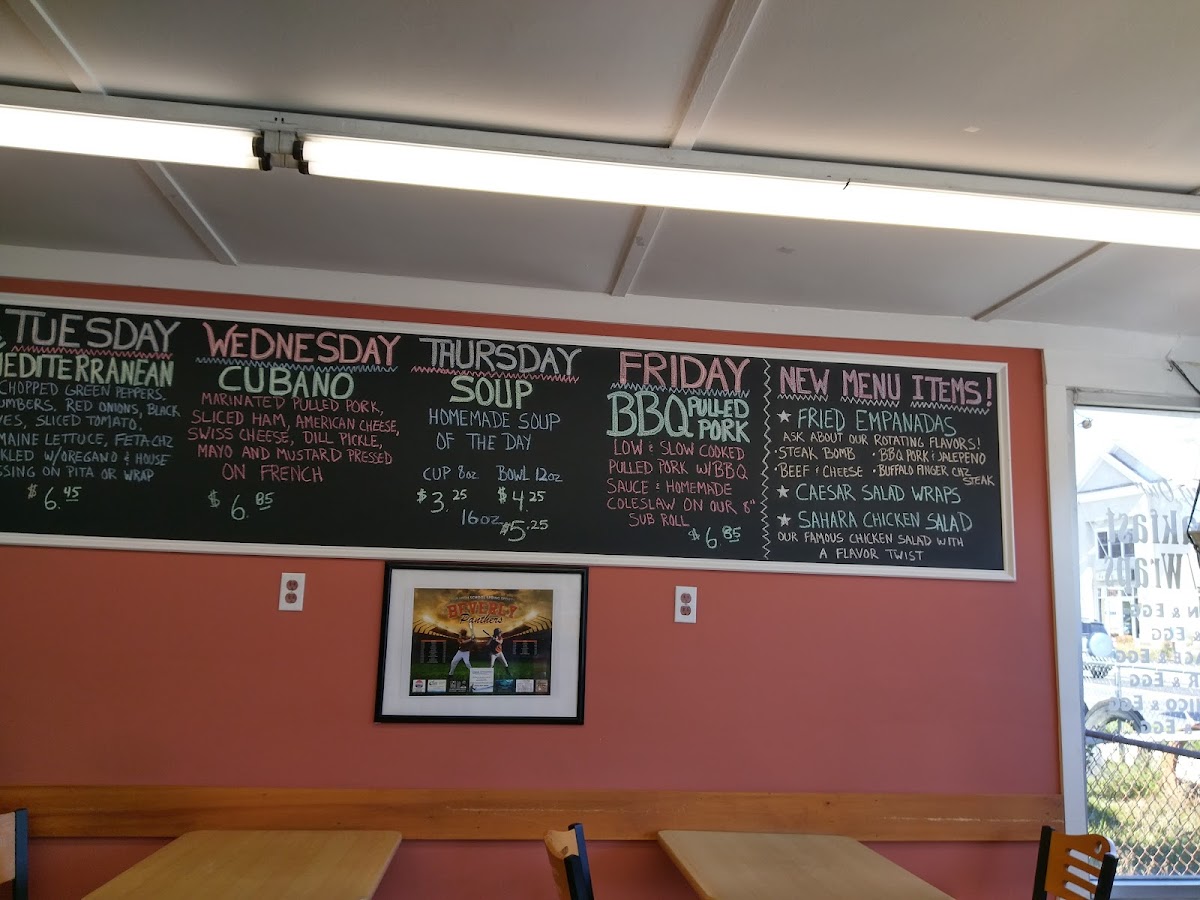 TUESDAY
MEDITERRANEAN
CHOPPED GREEN PEPPERS,
UMBERS, RED ONIONS, BLACK
VES, SLICED TOMATO,
MAINE LETTUCE, FETA CHZ
KLED W/OREGANO & HOUSE
SSING ON PITA OR WRAP
$6.45
WEDNESDAY
CUBANO
MARINATED PULLED PORK,
SLICED HAM, AMERICAN CHEESE,
SWISS CHEESE, DILL PICKLE,
MAYO AND MUSTARD PRESSED
ON FRENCH
$6.85
THURSDAY
SOUP
HOMEMADE SOUP
OF THE DAY
CUP 8oz BOWL 12oz
$3.25 $4.25
16oz $5.25
FRIDAY
BBQ PULLED PORK
LOW & SLOW COOKED
PULLED PORK W/BBQ
SAUCE & HOMEMADE
COLESLAW ON OUR 8"
SUB ROLL
$6.85
NEW MENU ITEMS!
★ FRIED EMPANADAS
ASK ABOUT OUR ROTATING FLAVORS!
·STEAK BOMB ·BBQ PORK & JALEPENO
·BEEF & CHEESE ·BUFFALO FINGER CHZ
STEAK
★ CAESAR SALAD WRAPS
★ SAHARA CHICKEN SALAD
OUR FAMOUS CHICKEN SALAD WITH
A FLAVOR TWIST
BEVERLY
Panthers
kfast
Wraps
N & EGG
& EGG
GE & EGG
R & EGG
ICO & EGG
& EGG